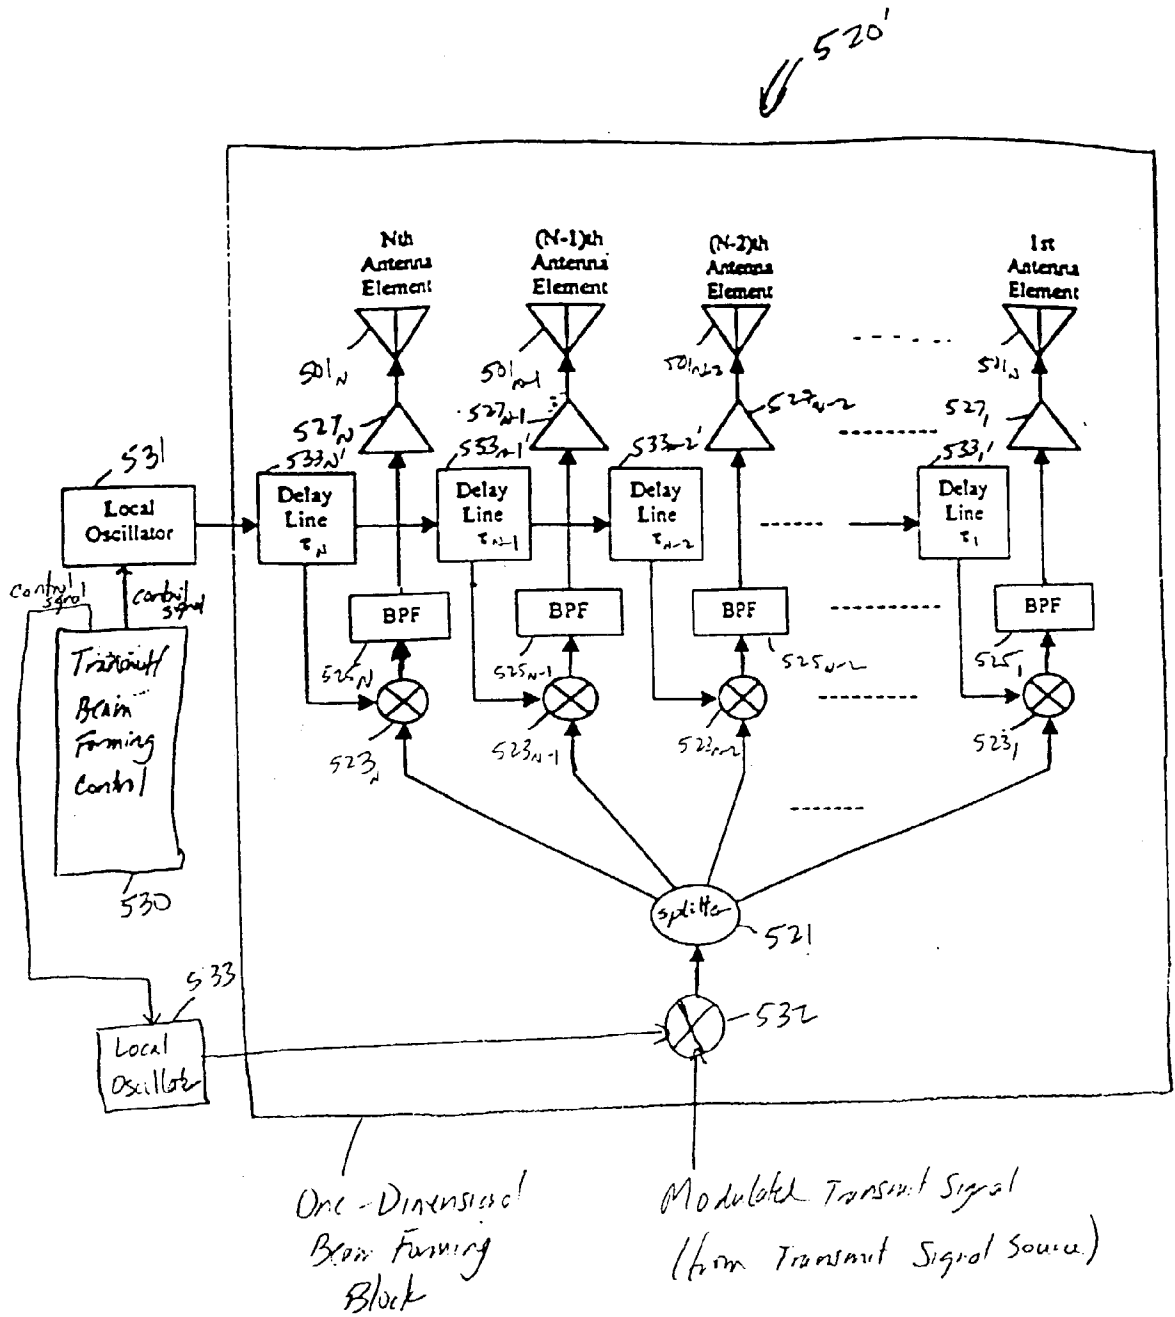 520'
Nth
Antenna
Element
(N-1)th
Antenna
Element
(N-2)th
Antenna
Element
1st
Antenna
Element
501N
501N-1
501N-2
501N
527N
527N-1
527N-2
5271
531
533N'
533N-1'
533N-2'
5331'
Local
Oscillator
Delay
Line
τN
Delay
Line
τN-1
Delay
Line
τN-2
Delay
Line
τ1
control
signal
control
signal
BPF
BPF
BPF
BPF
525N
525N-1
525N-2
5251
Transmit
Beam
Forming
Control
523N
523N-1
523N-2
5231
530
splitter
521
533
532
Local
Oscillator
One-Dimensional
Beam Forming
Block
Modulated Transmit Signal
(from Transmit Signal Source)